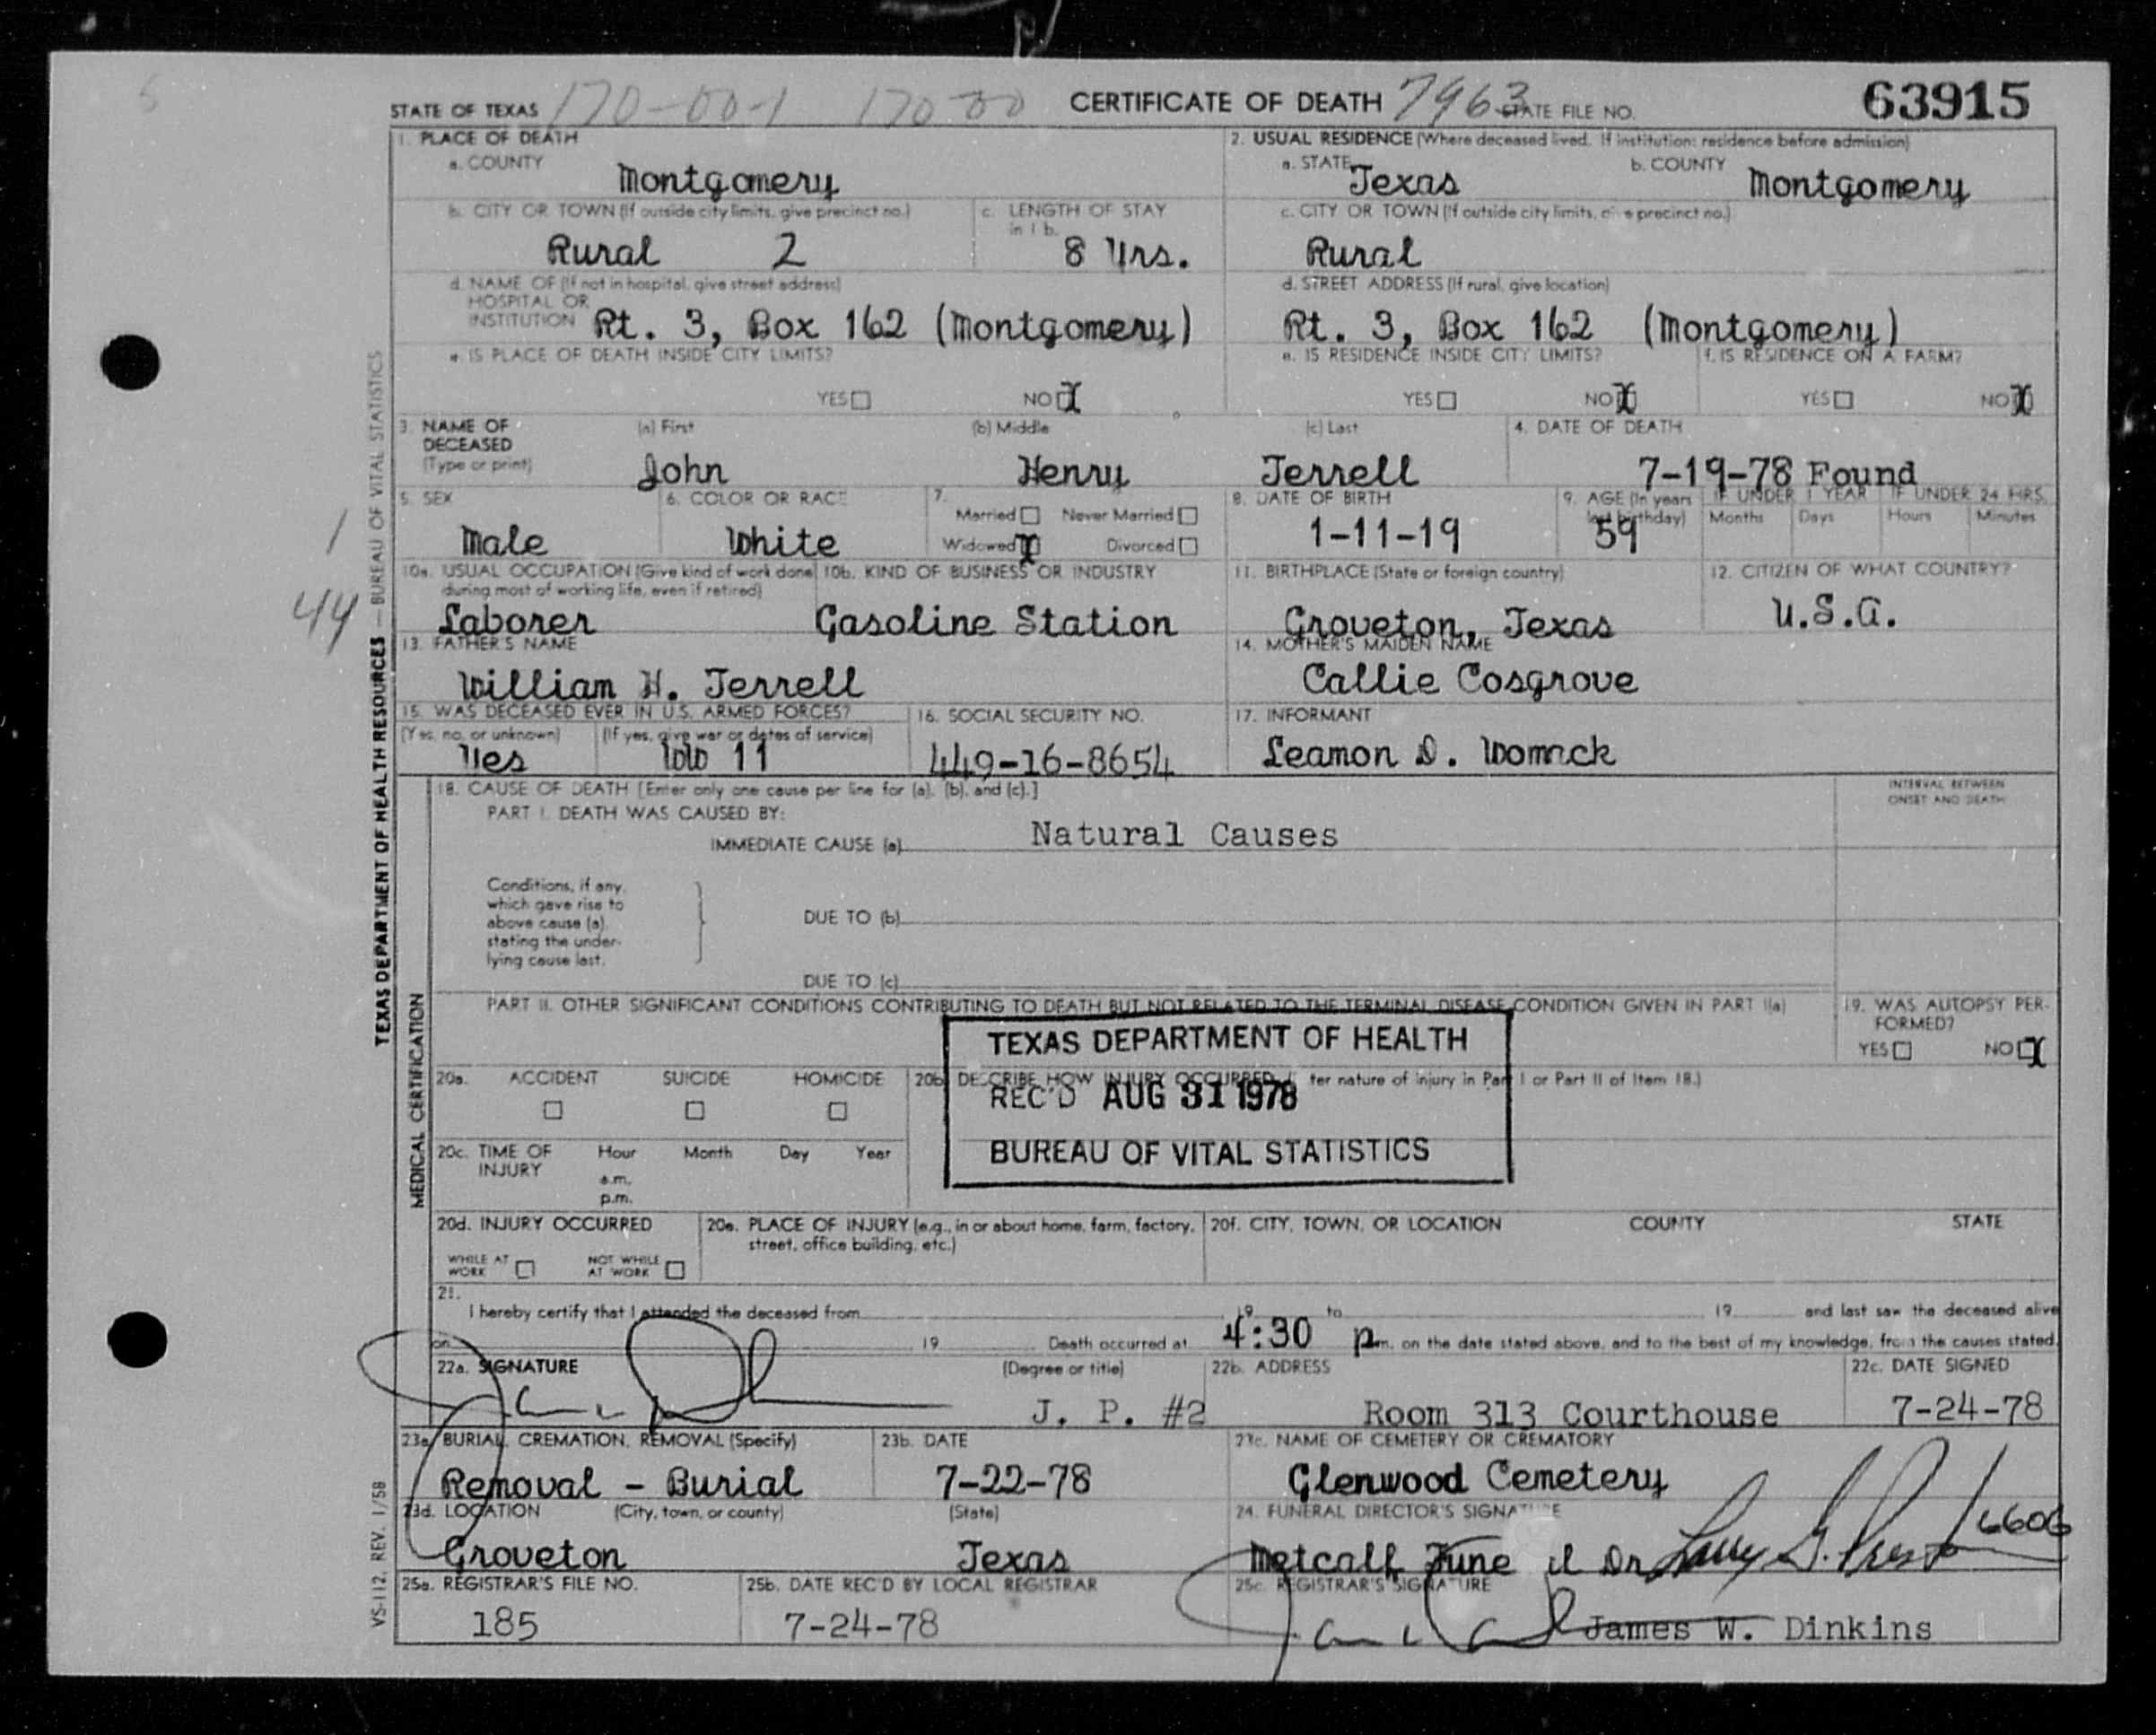 STATE OF TEXAS 170-00-1 17000 CERTIFICATE OF DEATH 7963 STATE FILE NO. 63915
1. PLACE OF DEATH
a. COUNTY
Montgomery
2. USUAL RESIDENCE (Where deceased lived. If institution: residence before admission)
a. STATE Texas
b. COUNTY Montgomery
b. CITY OR TOWN (If outside city limits, give precinct no.)
Rural 2
c. LENGTH OF STAY in 1 b.
8 Yrs.
c. CITY OR TOWN (If outside city limits, give precinct no.)
Rural
d. NAME OF (If not in hospital, give street address)
HOSPITAL OR
INSTITUTION Rt. 3, Box 162 (Montgomery)
d. STREET ADDRESS (If rural, give location)
Rt. 3, Box 162 (Montgomery)
e. IS PLACE OF DEATH INSIDE CITY LIMITS?
YES NO X
e. IS RESIDENCE INSIDE CITY LIMITS?
YES NO X
f. IS RESIDENCE ON A FARM?
YES NO X
3. NAME OF DECEASED
(Type or print)
(a) First (b) Middle (c) Last
John Henry Terrell
4. DATE OF DEATH
7-19-78 Found
5. SEX
Male
6. COLOR OR RACE
White
7.
Married Never Married
Widowed X Divorced
8. DATE OF BIRTH
1-11-19
9. AGE (In years last birthday)
59
IF UNDER 1 YEAR IF UNDER 24 HRS.
Months Days Hours Minutes
10a. USUAL OCCUPATION (Give kind of work done
during most of working life, even if retired)
Laborer
10b. KIND OF BUSINESS OR INDUSTRY
Gasoline Station
11. BIRTHPLACE (State or foreign country)
Groveton, Texas
12. CITIZEN OF WHAT COUNTRY?
U.S.A.
13. FATHER'S NAME
William H. Terrell
14. MOTHER'S MAIDEN NAME
Callie Cosgrove
15. WAS DECEASED EVER IN U.S. ARMED FORCES?
(Yes, no, or unknown) (If yes, give war or dates of service)
Yes WW 11
16. SOCIAL SECURITY NO.
449-16-8654
17. INFORMANT
Leamon D. Womack
18. CAUSE OF DEATH [Enter only one cause per line for (a), (b), and (c).]
INTERVAL BETWEEN
ONSET AND DEATH
PART I. DEATH WAS CAUSED BY:
IMMEDIATE CAUSE (a) Natural Causes
Conditions, if any,
which gave rise to
above cause (a),
stating the under-
lying cause last.
DUE TO (b)
DUE TO (c)
PART II. OTHER SIGNIFICANT CONDITIONS CONTRIBUTING TO DEATH BUT NOT RELATED TO THE TERMINAL DISEASE CONDITION GIVEN IN PART I(a)
19. WAS AUTOPSY PER-
FORMED?
YES NO X
TEXAS DEPARTMENT OF HEALTH
REC'D AUG 31 1978
BUREAU OF VITAL STATISTICS
20a. ACCIDENT SUICIDE HOMICIDE
20b. DESCRIBE HOW INJURY OCCURRED. ter nature of injury in Part I or Part II of Item 18.)
20c. TIME OF INJURY
Hour Month Day Year
a.m.
p.m.
20d. INJURY OCCURRED
WHILE AT WORK NOT WHILE AT WORK
20e. PLACE OF INJURY (e.g., in or about home, farm, factory,
street, office building, etc.)
20f. CITY, TOWN, OR LOCATION COUNTY STATE
21.
I hereby certify that I attended the deceased from 19 to 19 and last saw the deceased alive
on 19 Death occurred at 4:30 p.m. on the date stated above, and to the best of my knowledge, from the causes stated.
22a. SIGNATURE (Degree or title)
J. P. #2
22b. ADDRESS
Room 313 Courthouse
22c. DATE SIGNED
7-24-78
23a. BURIAL, CREMATION, REMOVAL (Specify)
Removal - Burial
23b. DATE
7-22-78
23c. NAME OF CEMETERY OR CREMATORY
Glenwood Cemetery
23d. LOCATION (City, town, or county) (State)
Groveton Texas
24. FUNERAL DIRECTOR'S SIGNATURE
Metcalf Fune l Dr 6606
25a. REGISTRAR'S FILE NO.
185
25b. DATE REC'D BY LOCAL REGISTRAR
7-24-78
25c. REGISTRAR'S SIGNATURE
James W. Dinkins
TEXAS DEPARTMENT OF HEALTH RESOURCES — BUREAU OF VITAL STATISTICS
MEDICAL CERTIFICATION
VS-112, REV. 1/58
1
44
5